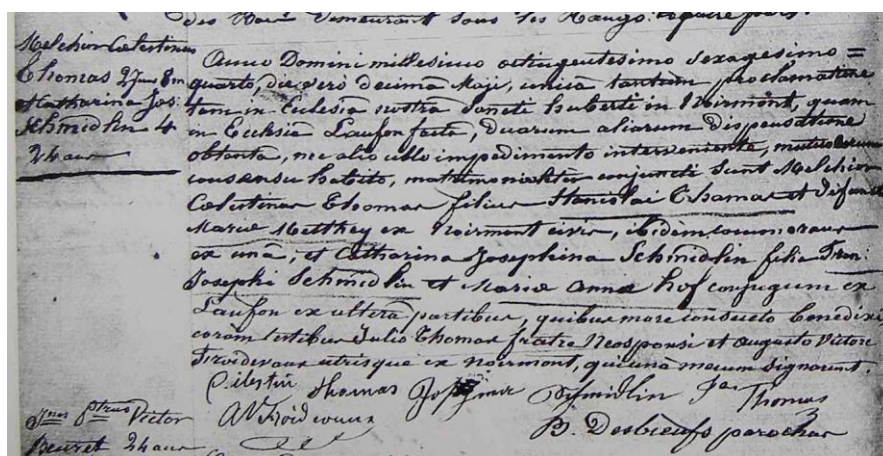 des Bois demeurant sous les Rangs
Melchior Celestinus
Thomas 2
et Catharina Jos:
Schmidlin 4
24 aus
Anno Domini millesimo octingentesimo sexagesimo =
quarto, die vero decima Maji, unica tantum proclamatione
tam in Eclesia nostra Sancti Huberti in Noirmont, quam
in Ecclesia Laufon facta, duarum aliarum dispensatione
obtenta, nec alio ullo impedimento interveniente, mutuo eorum
consensu habito, matrimonialiter conjuncti sunt Melchior
Celestinus Thomas filius Stanislai Thomas et defunctæ
Mariæ Metthey ex Noirmont civis, ibidem commorans
ex unâ, et Catharina Josephina Schmidlin filia Fran:
Josephi Schmidlin et Mariæ Annæ Hof conjugum ex
Laufon ex alterâ partibus, quibus more consueto benedixi,
coram testibus Julio Thomas fratre Neosponsi et Augusto Victore
Froidevaux utrisque ex Noirmont, qui unà mecum signarunt.
Célestin Thomas Josephine Schmidlin Jes Thomas
AV Froidevaux
B. Desbœufs parochus
Victor
Beuret 24 aus